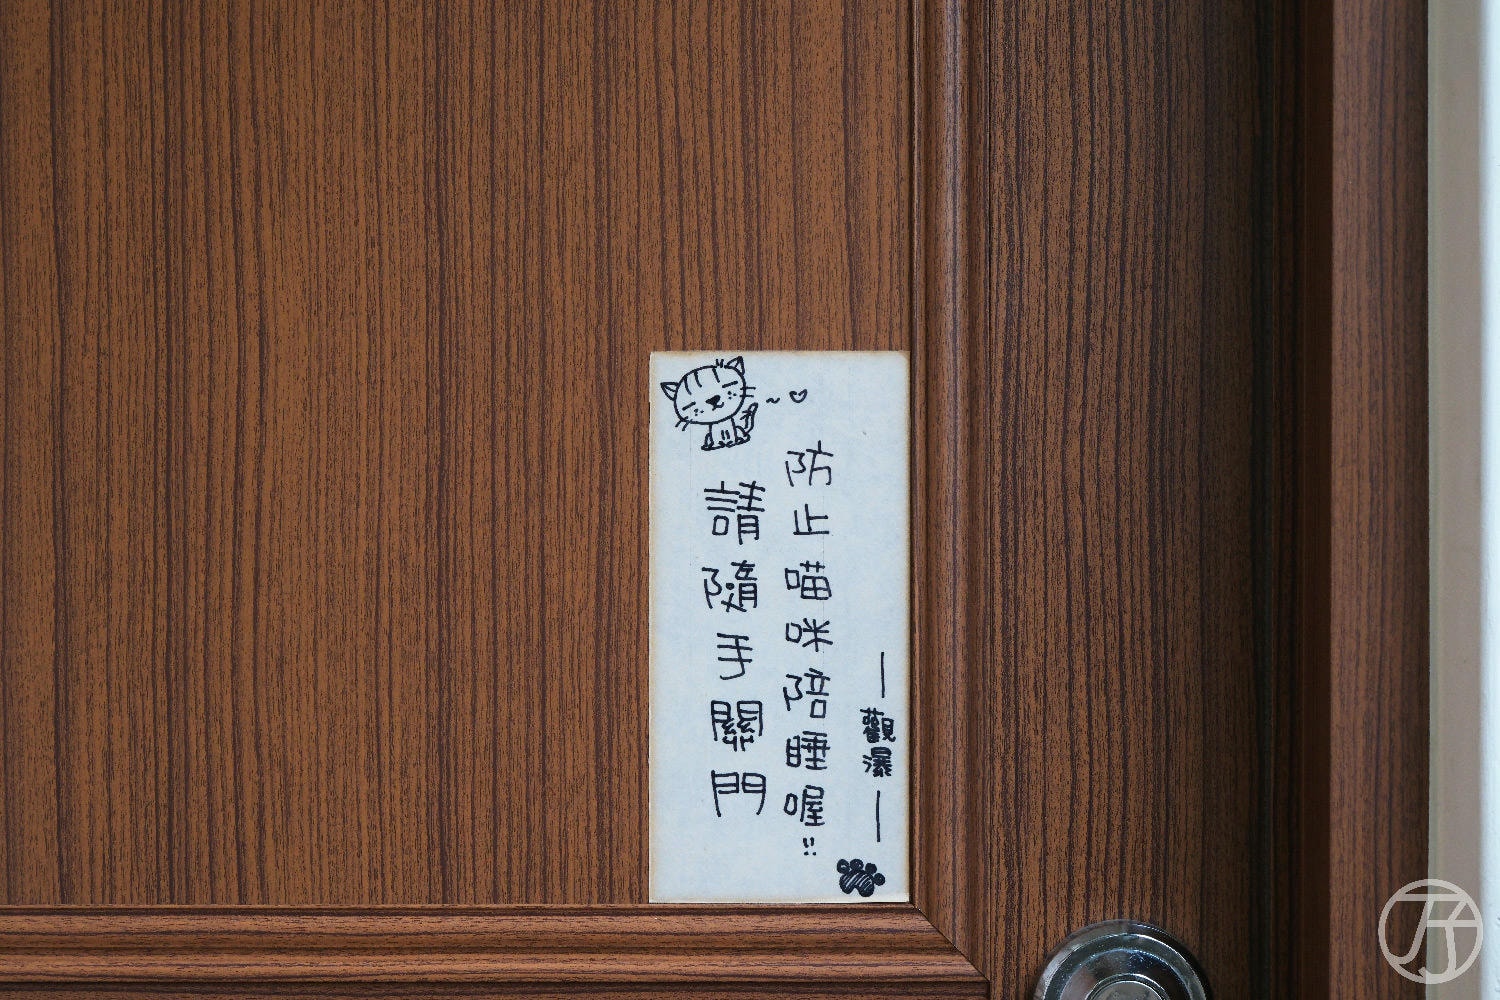 防止喵咪陪睡喔!!
請隨手關門
—觀瀑—